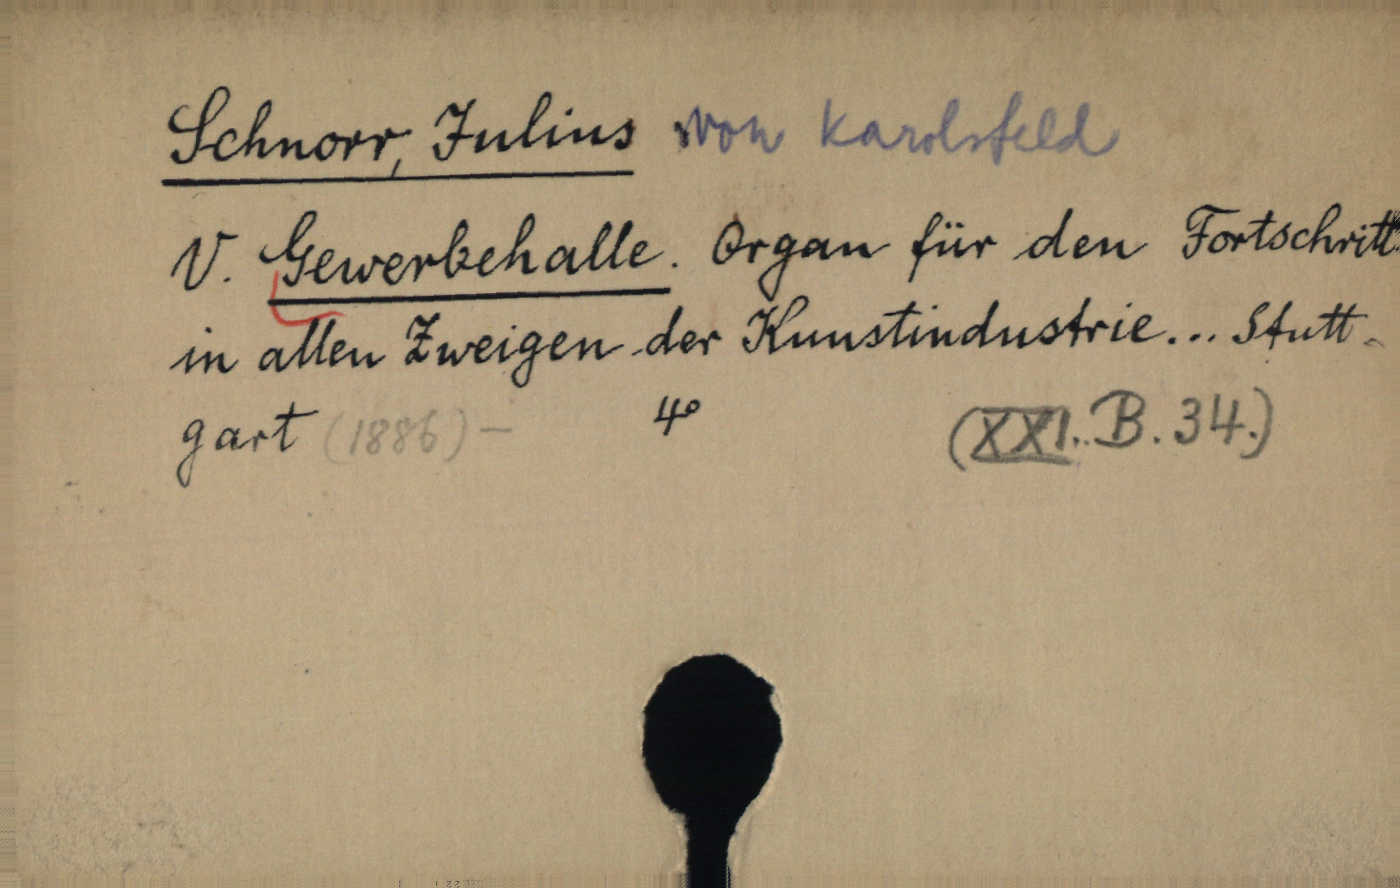 Schnorr, Julius von Karolsfeld
V. Gewerbehalle. Organ für den Fortschritt
in allen Zweigen der Kunstindustrie... Stutt-
gart (1886) - 4° (XXI. B. 34.)